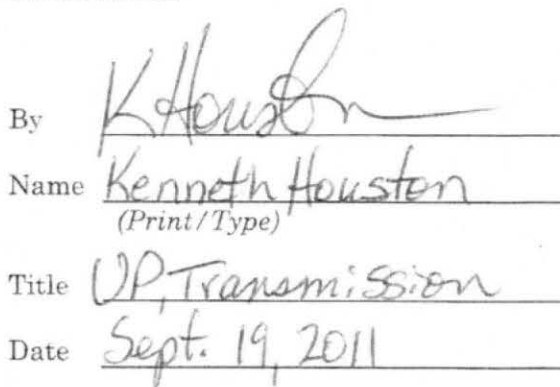 By K Houston
Name Kenneth Houston
(Print/Type)
Title VP, Transmission
Date Sept. 19, 2011